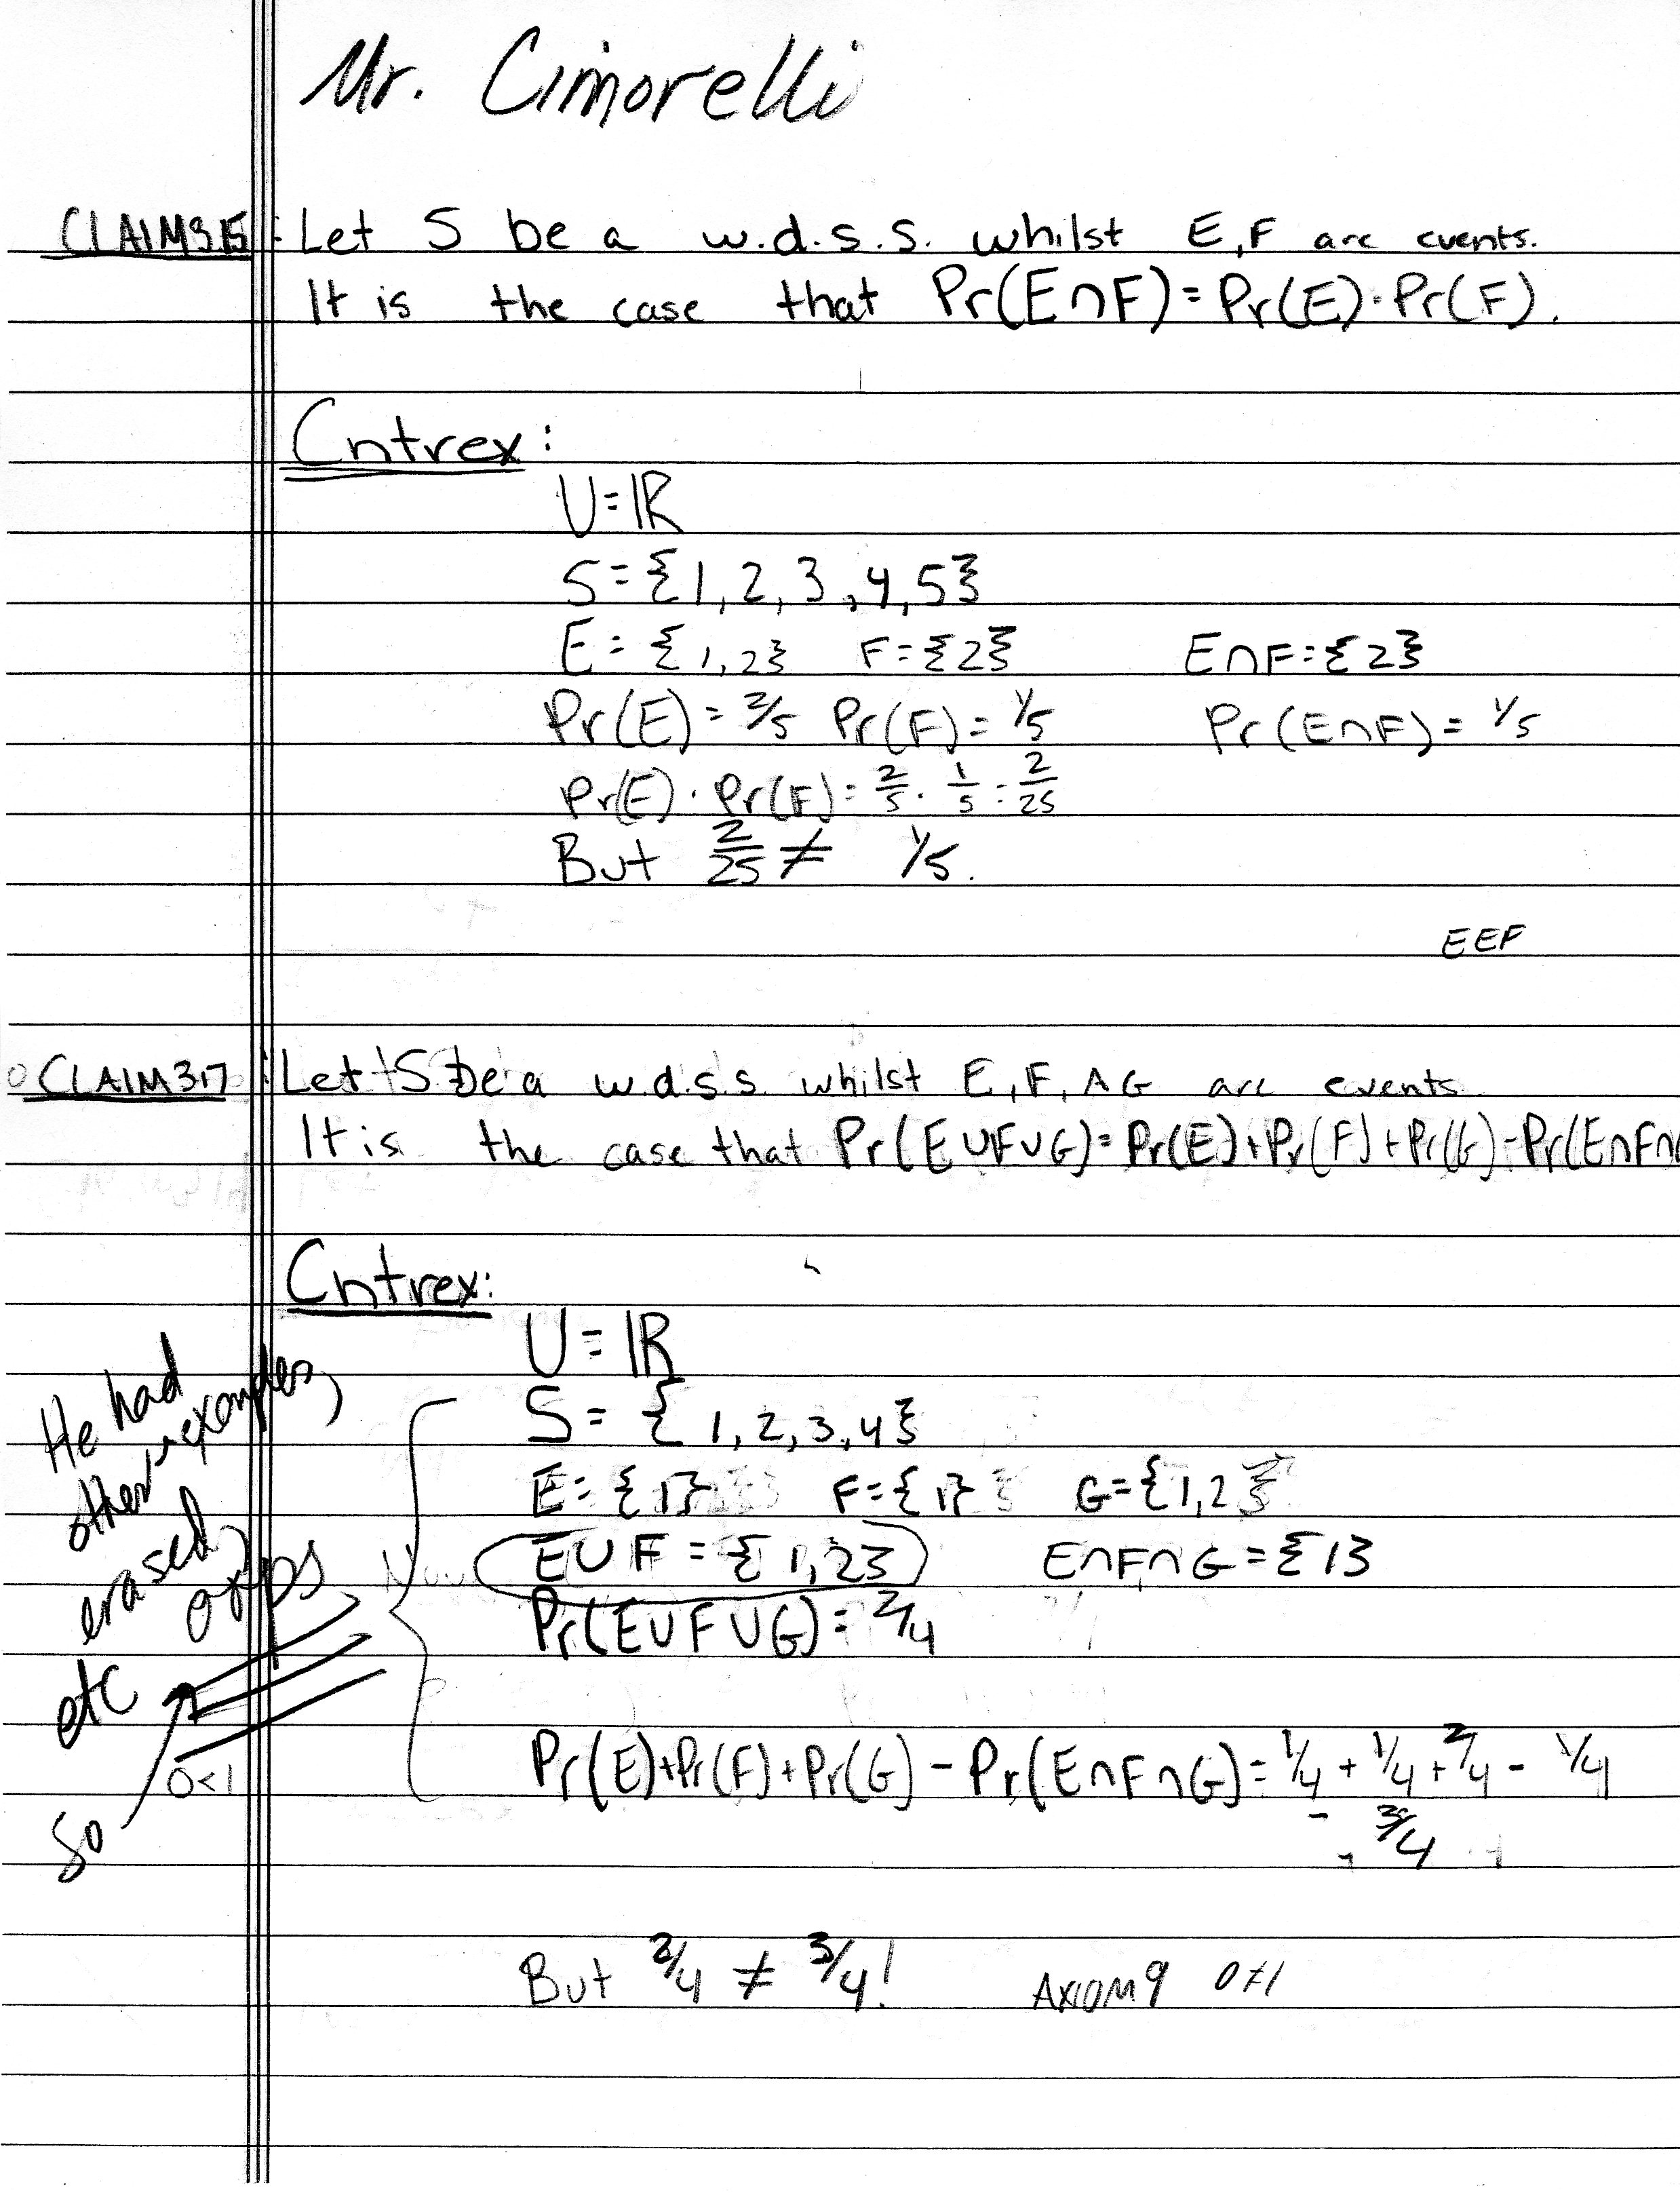 Mr. Cimorelli
CLAIM 3.15: Let S be a w.d.s.s. whilst E,F are events.
It is the case that Pr(E∩F)=Pr(E)·Pr(F).
Cntrex:
U=ℝ
S={1,2,3,4,5}
E={1,2} F={2} E∩F={2}
Pr(E)=2/5 Pr(F)=1/5 Pr(E∩F)=1/5
Pr(E)·Pr(F)=2/5·1/5=2/25
But 2/25≠ 1/5.
EEF
CLAIM 3.17: Let S be a w.d.s.s. whilst E,F,∧G are events
It is the case that Pr(E∪F∪G)=Pr(E)+Pr(F)+Pr(G)-Pr(E∩F∩
Cntrex:
U=ℝ
S={1,2,3,4}
E={1} F={1} G={1,2}
E∪F={1,2} E∩F∩G={1}
Pr(E∪F∪G)=2/4
Pr(E)+Pr(F)+Pr(G)-Pr(E∩F∩G)=1/4+1/4+2/4-1/4
3/4
But 2/4≠3/4! AXIOM 9 0≠1
He had
other examples,
erased
etc
So
0<1